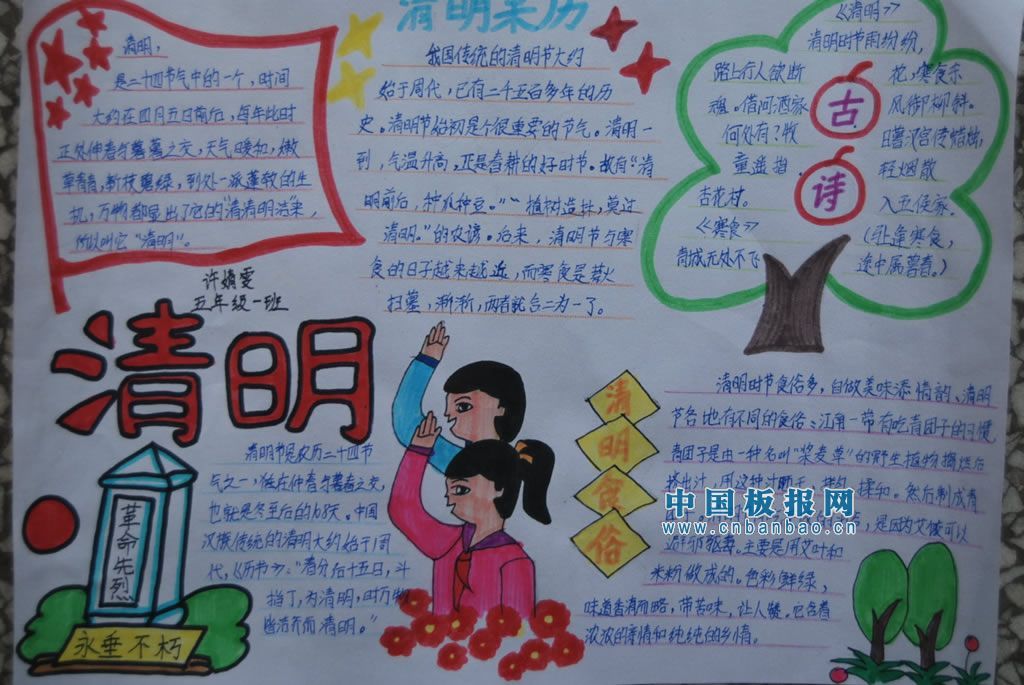 清明,
是二十四节气中的一个,时间
大约在四月五日前后,每年此时
正处仲春与暮春之交,天气暖和,嫩
草青青,新枝嫩绿,到处一派蓬勃的生
机,万物都显出了它的"清清明洁来,
所以叫它"清明"。
许娟雯
五年级一班
清明来历
我国传统的清明节大约
始于周代,已有二千五百多年的历
史。清明节始初是个很重要的节气。清明一
到,气温升高,正是春耕的好时节。故有"清
明前后,种瓜种豆。""植树造林,莫过
清明。"的农谚。后来,清明节与寒
食的日子越来越近,而寒食是禁火
扫墓,渐渐,两者就合二为一了。
《清明》
清明时节雨纷纷,
路上行人欲断
魂。借问酒家
何处有?牧
童遥指
杏花村。
《寒食》
城无处不飞
古诗
花,寒食东
风御柳斜。
日暮汉宫传蜡烛,
轻烟散
入五侯家。
逢寒食,
途中属暮春。)
清明
清明节是农历二十四节
气之一,在仲春与暮春之交,
也就是冬至后的108天。中国
汉族传统的清明大约始于周
代,《历书》:"春分后十五日,斗
指丁,为清明,时万物
洁而清明。"
革命先烈
永垂不朽
清明食俗
清明时节食俗多,自做美味添情韵、清明
节各地有不同的食俗:江南一带有吃青团子的习惯
青团子是由一种名叫"浆麦草"的野生植物捣烂后
挤出汁,用这种汁
揉和。然后制成青
中国板报网
www.cnbanbao.cn
是因为艾
可以
主要是用艾叶和
米粉做成的。色彩鲜绿,
味道香清而略,带苦味,让人馋。它含着
浓浓的亲情和纯纯的乡情。